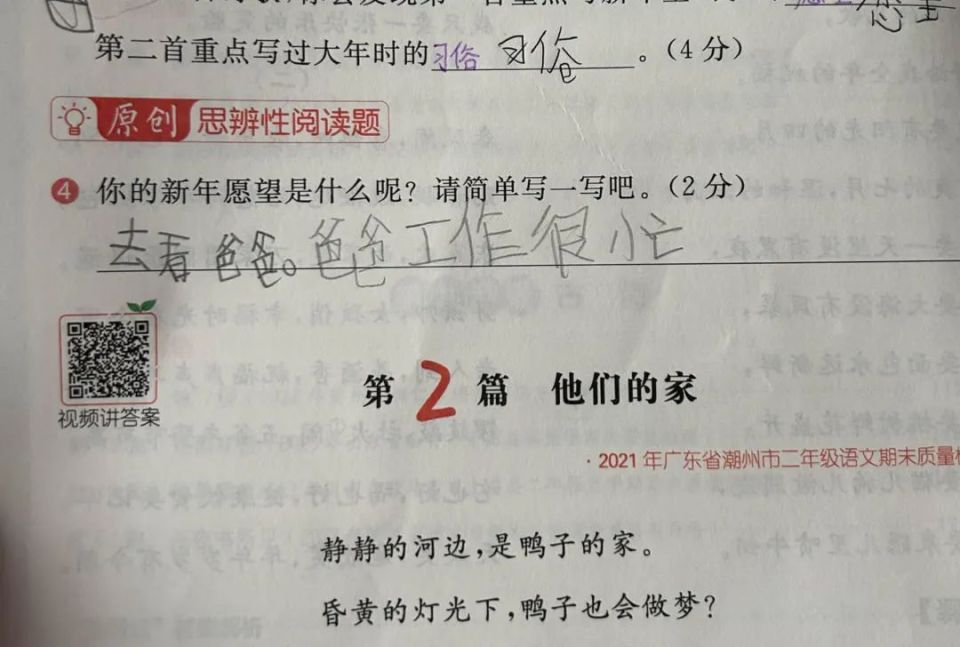 第二首重点写过大年时的习俗 习俗。(4分)
原创 思辨性阅读题
4 你的新年愿望是什么呢？请简单写一写吧。(2分)
去看爸爸。爸爸工作很忙
视频讲答案
第2篇 他们的家
·2021年广东省潮州市二年级语文期末质量
静静的河边，是鸭子的家。
昏黄的灯光下，鸭子也会做梦？